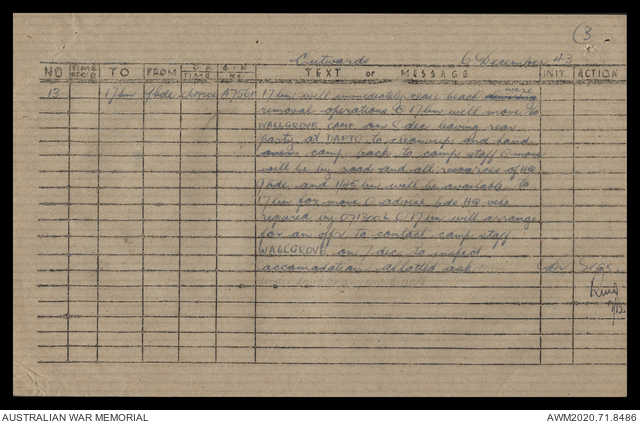 3
Outwards 6 December 43
NO TIME REC'D TO FROM TIME TEXT OF MESSAGE INIT. ACTION
13 17 bn 9 bde A7561 17 bn will immediately cease beach wire
removal operations 17 bn will move to
WALLGROVE CAMP on 8 dec leaving rear
party at DAPTO to cleanup and hand
camp back to camp staff move
will be by road and all resources of HQ
9 bde and 1/45 bn will be available to
17 bn for move advise bde HQ vehs
required by 071300L 17 bn will arrange
for an offr to contact camp staff
WALLGROVE on 7 dec to inspect
accomodation allotted ack Sigs
AUSTRALIAN WAR MEMORIAL AWM2020.71.8486